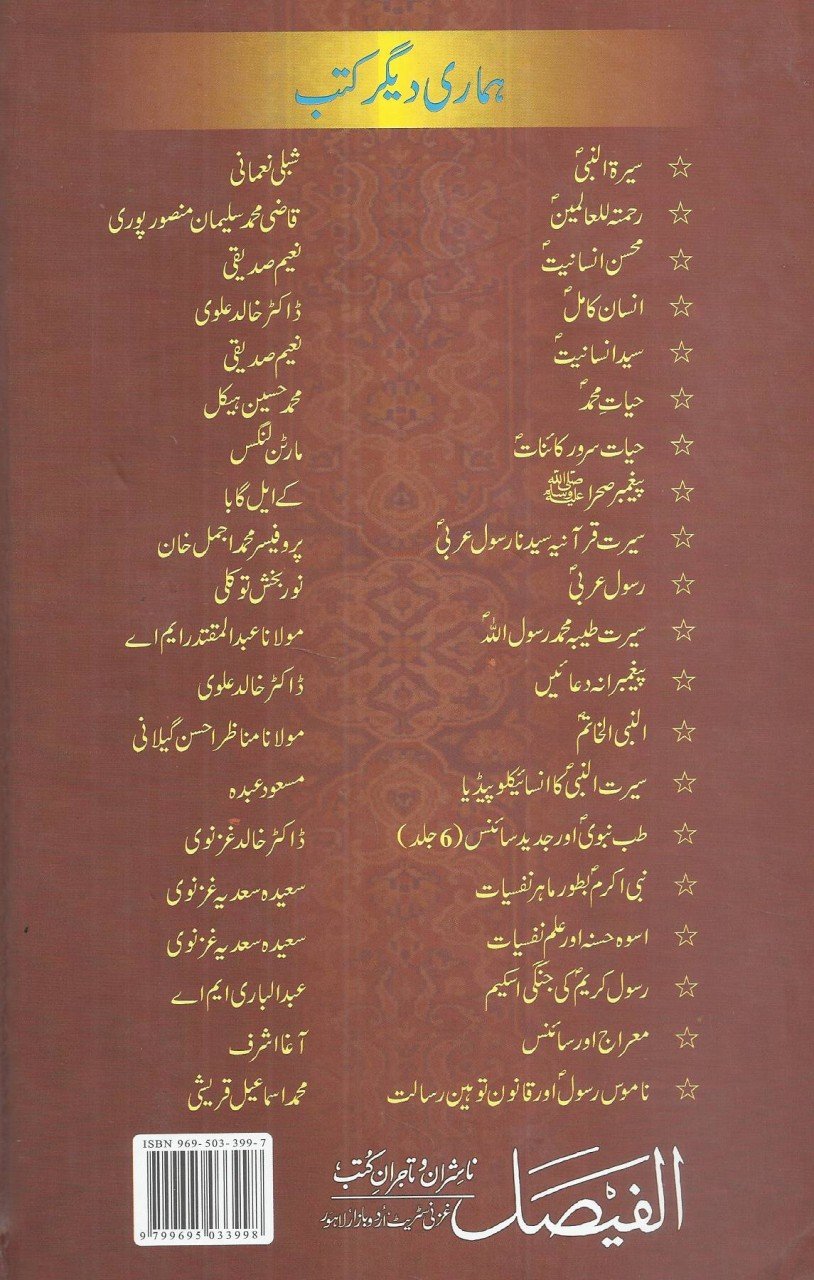 ہماری دیگر کتب
☆ سیرۃ النبیؐ شبلی نعمانی
☆ رحمتہ للعالمینؐ قاضی محمد سلیمان منصور پوری
☆ محسن انسانیتؐ نعیم صدیقی
☆ انسان کاملؐ ڈاکٹر خالد علوی
☆ سید انسانیتؐ نعیم صدیقی
☆ حیاتِ محمدؐ محمد حسین ہیکل
☆ حیات سرور کائناتؐ مارٹن لنگس
☆ پیغمبر صحرا ﷺ کے ایل گابا
☆ سیرت قرآنیہ سیدنا رسول عربیؐ پروفیسر محمد اجمل خان
☆ رسول عربیؐ نور بخش توکلی
☆ سیرت طیبہ محمد رسول اللہؐ مولانا عبدالمقتدر ایم اے
☆ پیغمبرانہ دعائیں ڈاکٹر خالد علوی
☆ النبی الخاتمؐ مولانا مناظر احسن گیلانی
☆ سیرت النبیؐ کا انسائیکلوپیڈیا مسعود عبدہ
☆ طب نبویؐ اور جدید سائنس (6 جلد) ڈاکٹر خالد غزنوی
☆ نبی اکرمؐ بطور ماہر نفسیات سعیدہ سعدیہ غزنوی
☆ اسوہ حسنہ اور علم نفسیات سعیدہ سعدیہ غزنوی
☆ رسول کریمؐ کی جنگی اسکیم عبدالباری ایم اے
☆ معراج اور سائنس آغا اشرف
☆ ناموس رسولؐ اور قانون توہین رسالت محمد اسماعیل قریشی
الفیصل
ناشران و تاجران کتب
غزنی سٹریٹ اردو بازار لاہور
ISBN 969-503-399-7
9 799695 033998